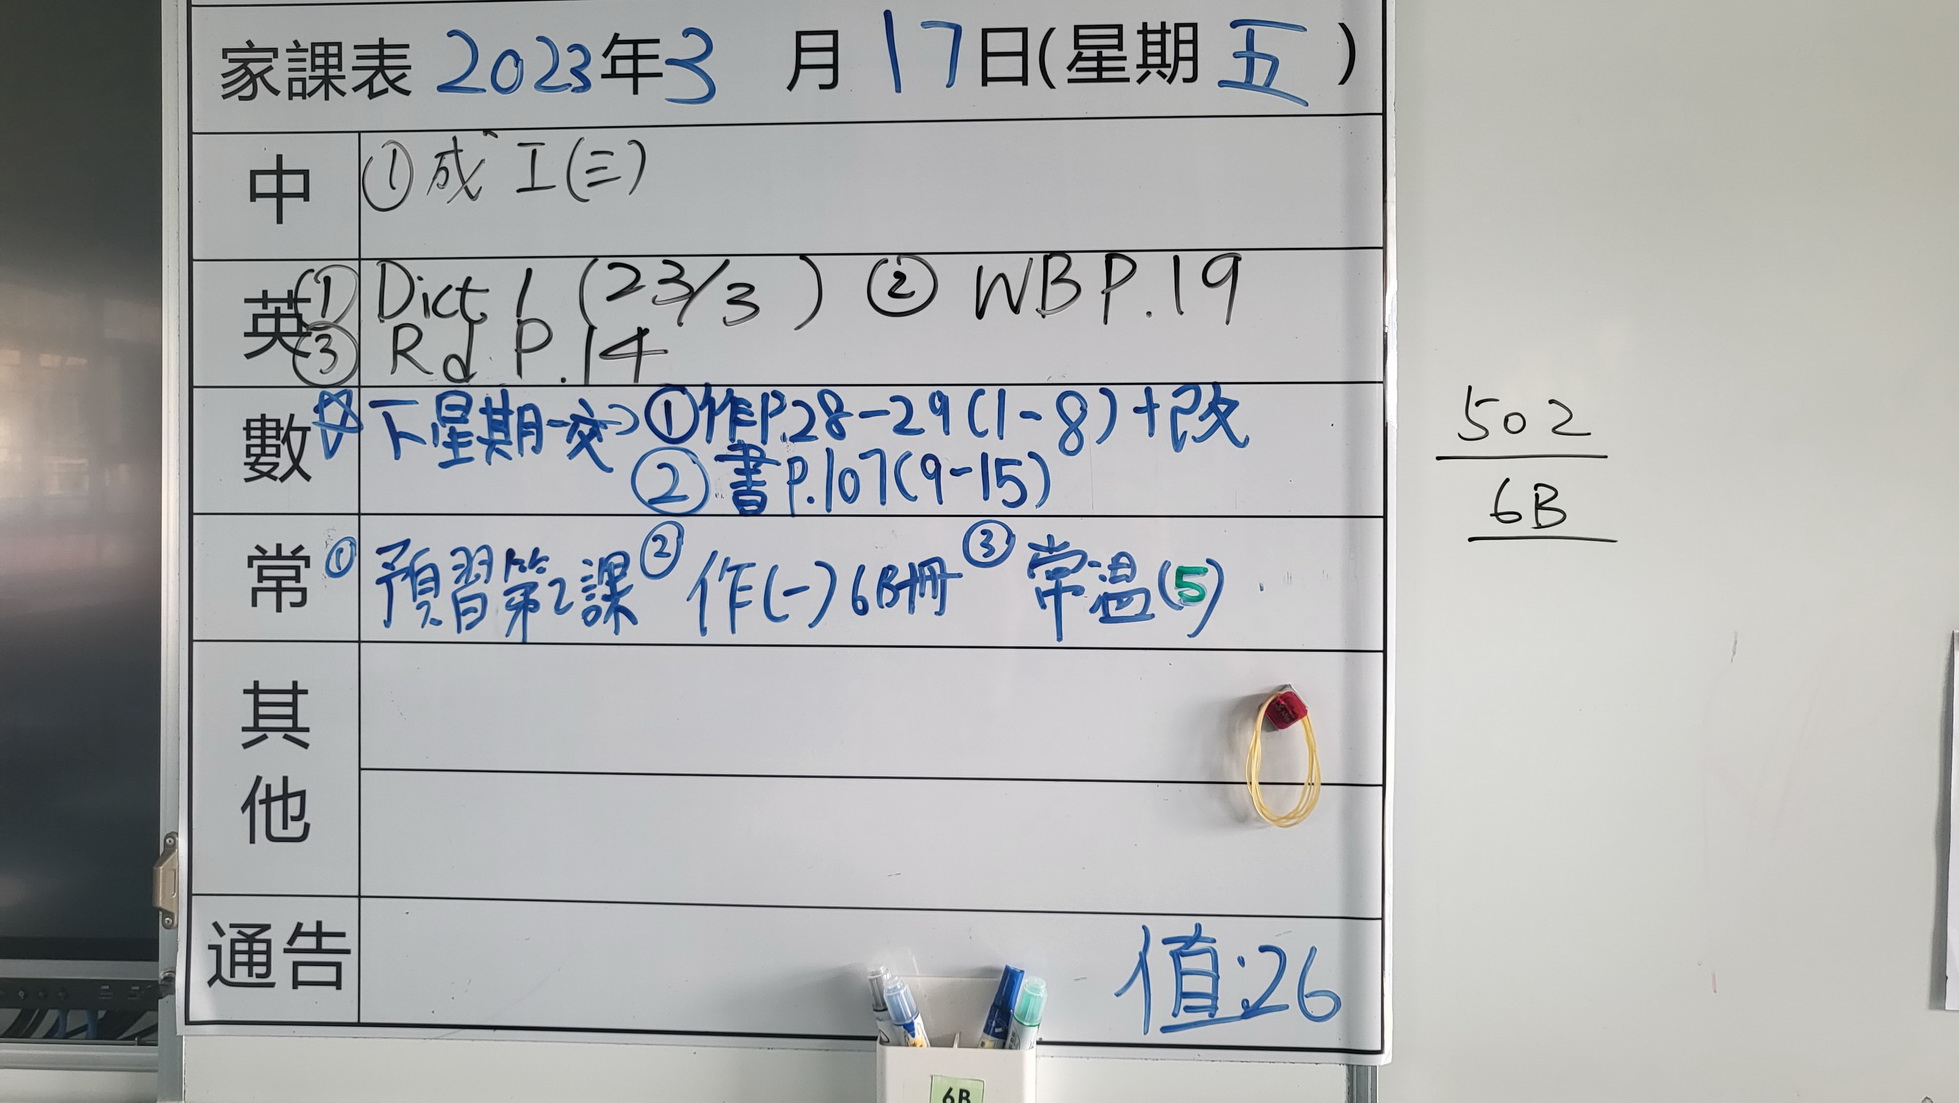 家課表 2023年3月17日(星期五)
中 ①成 工(三)
英 ① Dict 1 (23/3) ② WB P.19
③ Rd P.14
數 ☆下星期一交→①作P.28-29(1-8)+改
②書P.107(9-15)
常 ①預習第2課 ②作(一)6B冊 ③常溫(5)
其他
通告
值:26
502
6B
6B